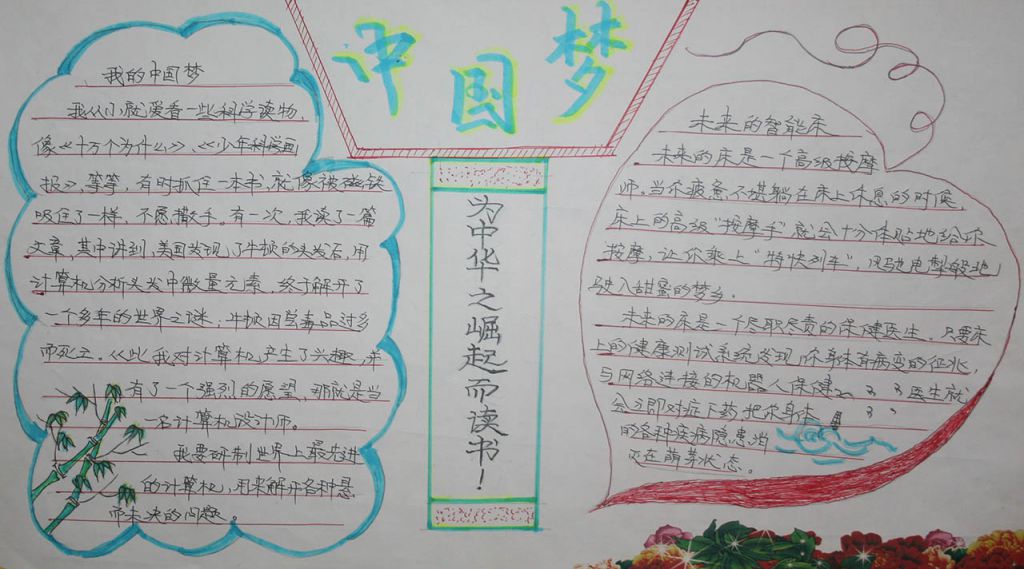 中国梦
我的中国梦
我从小就爱看一些科学读物,
像《十万个为什么》、《少年科学画
报》,等等,有时抓住一本书,就像被磁铁
吸住了一样,不愿撒手。有一次,我读了一篇
文章,其中讲到,美国发现了牛顿的头发后,用
计算机分析头发中微量元素,终于解开了
一个多年的世界之谜,牛顿因尝毒品过多
而死亡。从此我对计算机产生了兴趣,并
有了一个强烈的愿望,那就是当
一名计算机设计师。
我要研制世界上最先进
的计算机,用来解开各种悬
而未决的问题。
为中华之崛起而读书!
未来的智能床
未来的床是一个高级按摩
师。当你疲惫不堪躺在床上休息的时候,
床上的高级“按摩手”就会十分体贴地给你
按摩,让你乘上“特快列车”,风驰电掣般地
驶入甜蜜的梦乡。
未来的床是一个尽职尽责的保健医生。只要床
上的健康测试系统发现,你身体有病变的征兆,
与网络连接的机器人保健医生就
会立即对症下药把你身体
的各种疾病隐患消
灭在萌芽状态。